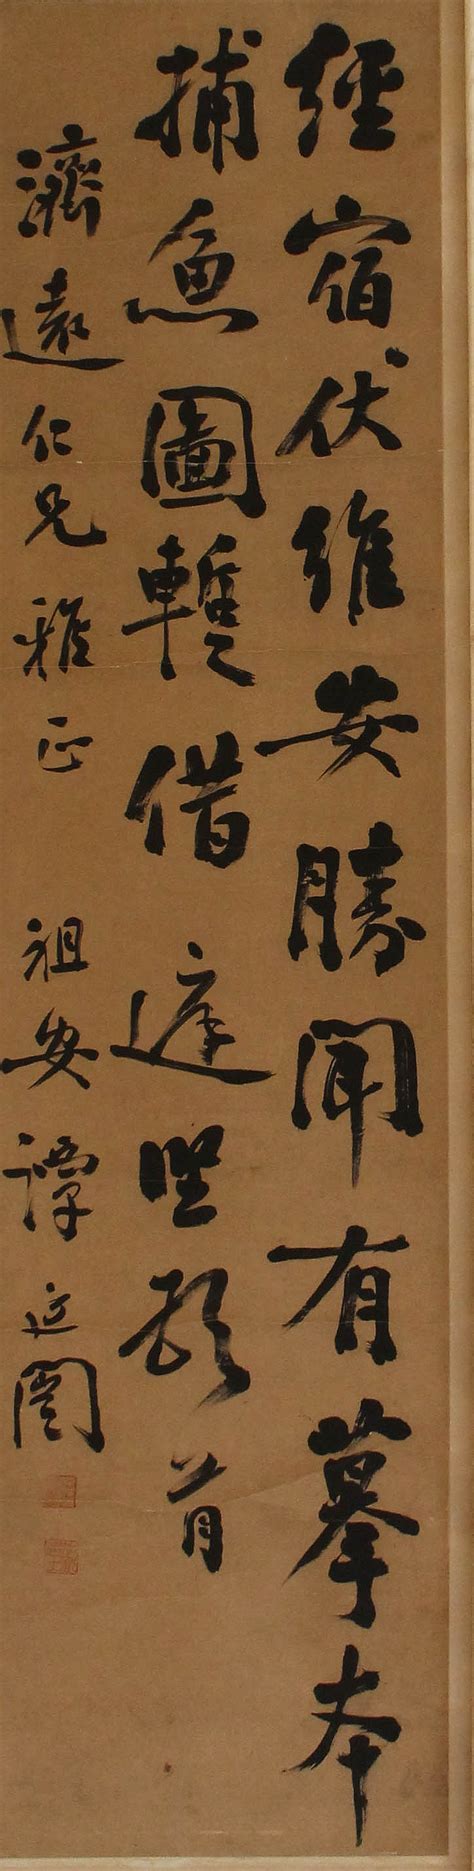 經宿伏維安勝聞有摹本
捕魚圖暫借庭堅頓首
濟遠仁兄雅正 祖安譚延闓